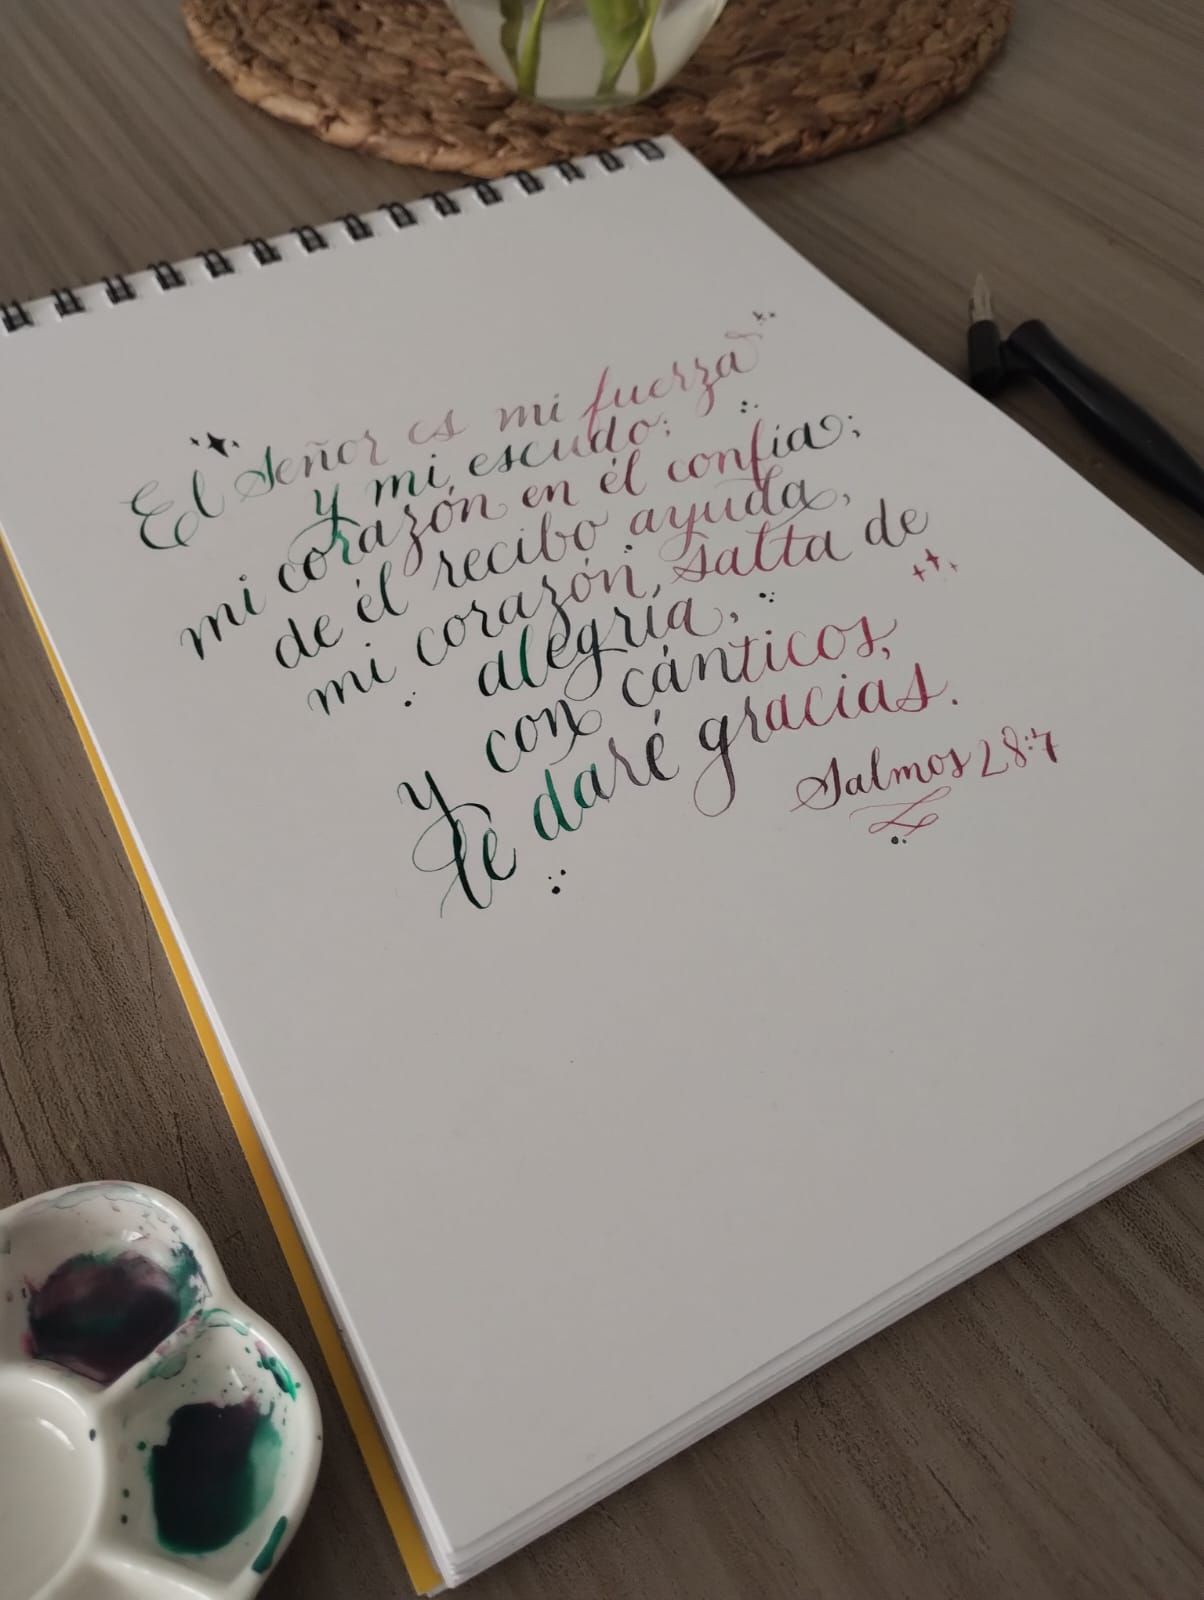 El Señor es mi fuerza
y mi escudo;
mi corazón en él confía;
de él recibo ayuda,
mi corazón, salta de
alegría,
y con cánticos,
le daré gracias.
Salmos 28:7